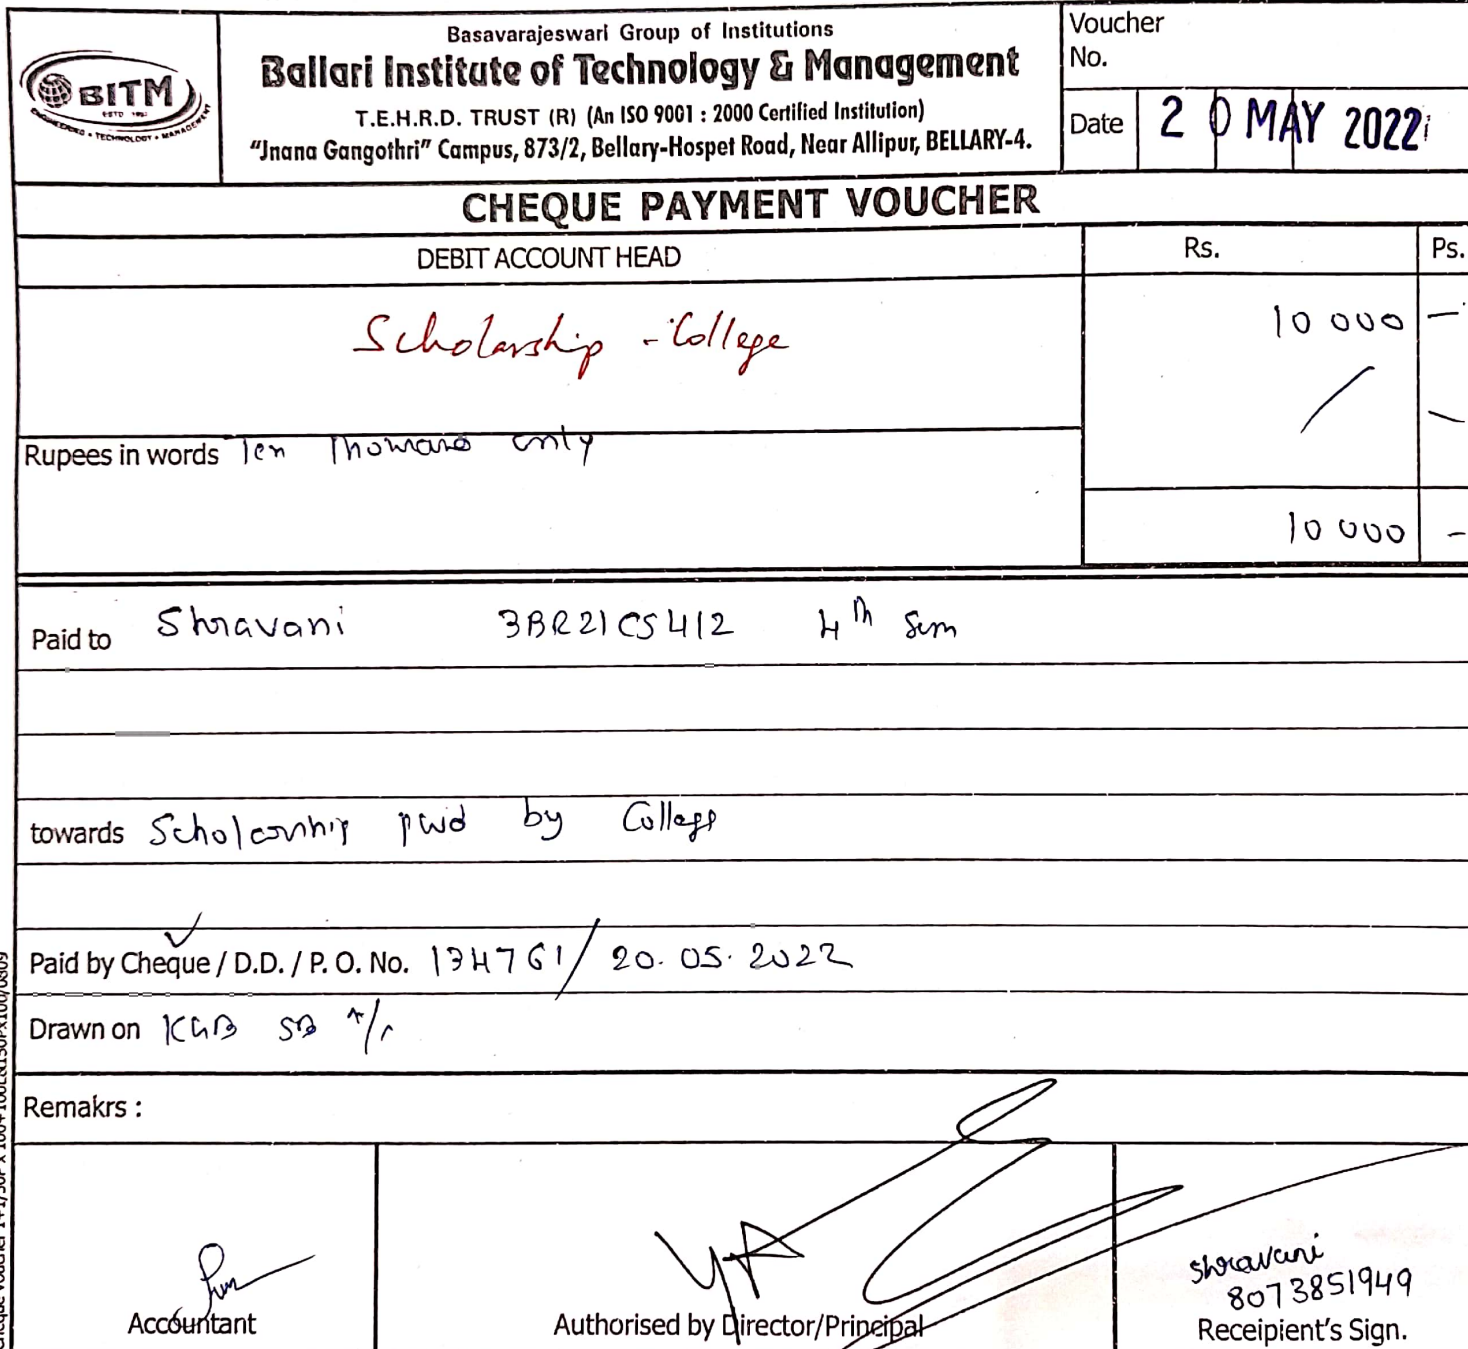 BITM
ESTD 1997
ENGINEERING • TECHNOLOGY • MANAGEMENT
Basavarajeswari Group of Institutions
Ballari Institute of Technology & Management
T.E.H.R.D. TRUST (R) (An ISO 9001 : 2000 Certified Institution)
"Jnana Gangothri" Campus, 873/2, Bellary-Hospet Road, Near Allipur, BELLARY-4.
Voucher
No.
Date 20 MAY 2022
CHEQUE PAYMENT VOUCHER
DEBIT ACCOUNT HEAD Rs. Ps.
Scholarship - College 10 000 —
Rupees in words Ten Thousand only
10 000 -
Paid to Shravani 3BR21CS412 4th Sem
towards Scholarship paid by College
Paid by Cheque / D.D. / P. O. No. 134761/ 20.05.2022
Drawn on KGB SB A/c
Remakrs :
Shravani
8073851949
Accountant Authorised by Director/Principal Receipient's Sign.